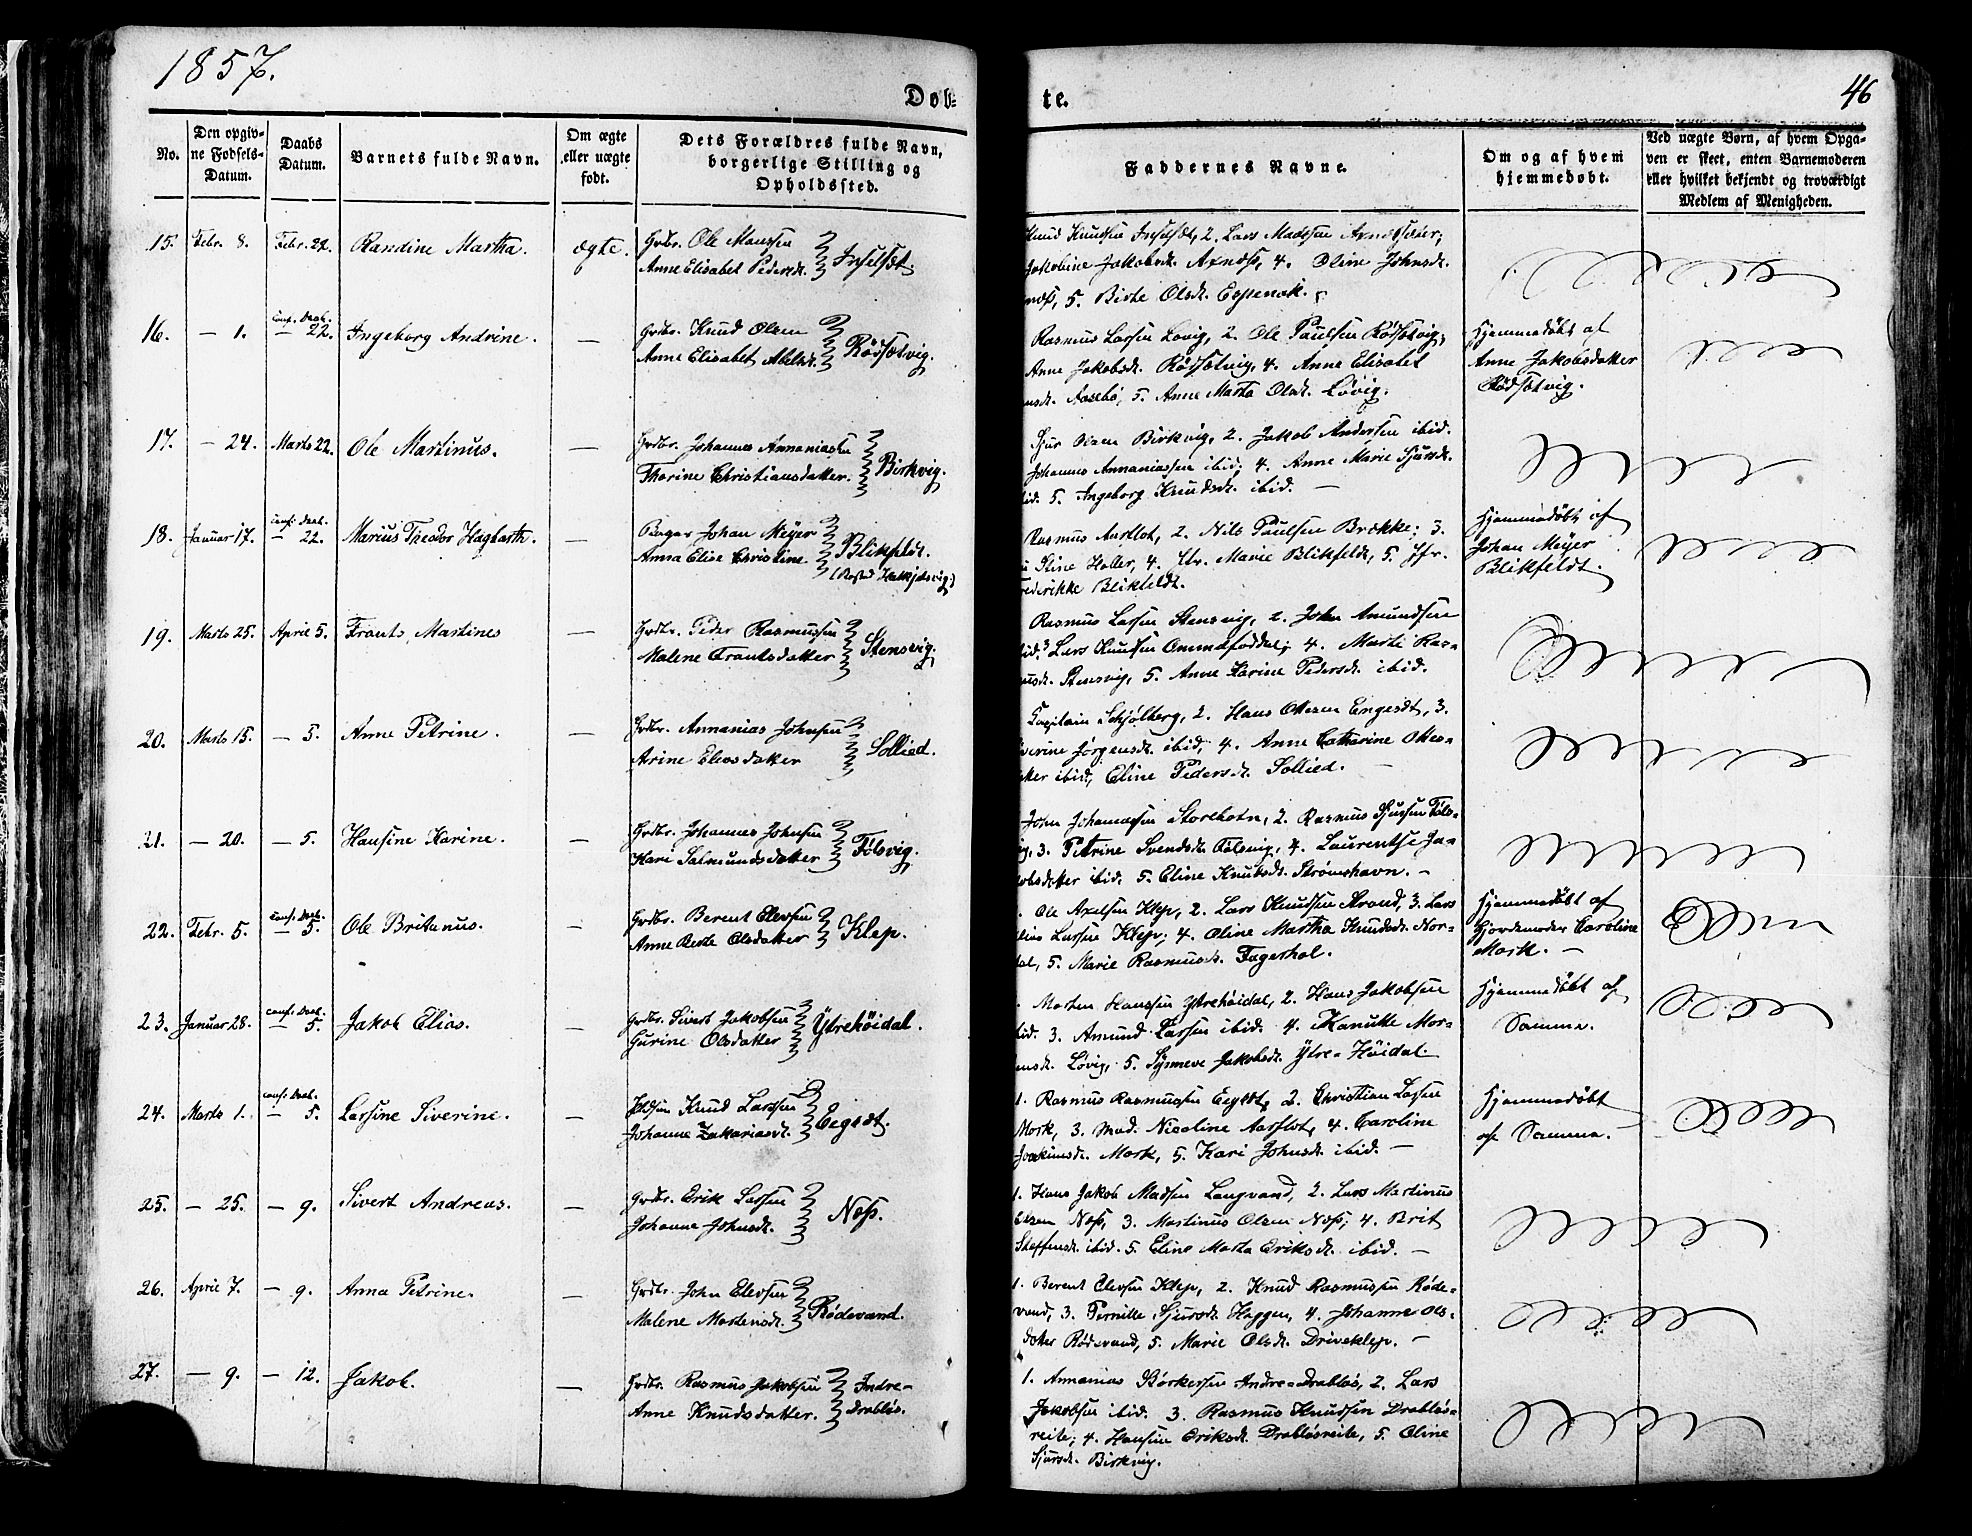 1857.
Døb-
te.
46
No.
Den opgiv-
ne Fødsels-
Datum.
Daabs
Datum.
Barnets fulde Navn.
Om ægte
eller uægte
født.
Dets Forældres fulde Navn,
borgerlige Stilling og
Opholdssted.
Faddernes Navne.
Om og af hvem
hjemmedøbt.
Ved uægte Børn, af hvem Opga-
ven er skeet, enten Barnemoderen
eller hvilket bekjendt og troværdigt
Medlem af Menigheden.
15. Febr. 8. Febr. 22. Randine Martha. ægte. Grdbr. Ole Monssen
Anne Elisabet Pedersdt.
Jakobine Jakobsdt. Axnæss, 4. Oline Johnsdt.
næss, 5. Birte Olsdt. Espenak.
16. — 1. conf. Daab. — 22. Ingeborg Andrine. — Grdbr. Knud Olsen
Anne Elisabet Abelsdt. Rødsætvig.
Rasmus Larsen Løvig, 2. Ole Paulsen Rødsætvig,
Anne Jakobsdt. Rødsætvig, 4. Anne Elisabet
Aasebø, 5. Anne Marta Olsdt. Løvig.
Hjemmedøbt af
Anne Jakobsdatter
Rødsætvig.
17. — 24. Marts 22. Ole Martinus. — Grdbr. Johannes Annaniassen
Thorine Christiansdatter. Birkvig.
Sjur Olsen Birkvig, 2. Jakob Andersen ibid.
Johannes Annaniassen ibid; 4. Anne Marie Sjursdt.
ibid. 5. Ingeborg Knudsdt. ibid. —
18. Januar 17. conf. Daab. — 22. Marius Theodor Hagbarth. — Borger Johan Meyer
Anna Elise Christine Blikfeldt.
Rasmus Aarflot, 2. Nils Paulsen Brække; 3.
Stine Holler, 4. Jfr. Marie Blikfeldt, 5. Jfr.
Frederikke Blikfeldt.
Hjemmedøbt af
Johan Meyer
Blikfeldt.
19. Marts 25. April 5. Frants Martines — Grdbr. Peder Rasmussen
Malene Frantsdatter Stensvig.
Rasmus Larsen Stensvig, 2. John Amundsen
ibid. 3. Lars Knudsen Ommafoddal; 4. Marte Ras-
musdt. Stensvig, 5. Anne Karine Pedersdt. ibid.
20. Marts 15. — 5. Anne Petrine. — Grdbr. Annanias Johnsen
Arine Eleusdatter Sollied.
Capitain Schjølberg, 2. Hans Ottesen Engesdt, 3.
Severine Jørgensdt. ibid, 4. Anne Catharine Ottes-
datter ibid; Eline Pedersdt. Sollied. —
21. — 20. — 5. Hansine Karine. — Grdbr. Johannes Johnsen
Kari Salmundsdatter Følsvig.
John Johannessen Storehovn, 2. Rasmus Sjursen Føls-
vig, 3. Petrine Svendsdt. Følsvig, 4. Laurentse Ja-
kobsdatter ibid. 5. Eline Knutsdt. Strømshavn. —
22. Febr. 5. conf. Daab. — 5. Ole Britanus. — Grdbr. Berent Elevsen
Anne Berte Olsdatter Klep.
Ole Axelsen Klep, 2. Lars Knudsen Strand, 3. Lars
Larsen Klep; 4. Oline Martha Knudsdt. Nor-
dal, 5. Marie Rasmusdt. Fagerhol.
Hjemmedøbt af
Gjordemoder Caroline
Mork. —
23. Januar 28. conf. Daab. — 5. Jakob Elias. — Grdbr. Sivert Jakobsen
Gurine Olsdatter Ytrehöidal.
Morten Hanssen Ytrehöidal, 2. Hans Jakobsen
ibid. 3. Amund Larsen ibid. 4. Kanutte Mor-
tensdt. Løvig, 5. Synneve Jakobsdt. Ytre-Höidal.
Hjemmedøbt af
Samme.
24. Marts 1. conf. Daab. — 5. Larsine Siverine. — Knud Larssen
Johanne Zakariasdt. Eegsdt.
1. Rasmus Rasmussen Eegsdt, 2. Christian Larsen
Mork, 3. Mad. Nicoline Aarflot, 4. Caroline
Joakimsdt. Mork, 5. Kari Johnsdt. ibid. —
Hjemmedøbt
af Samme.
25. — 25. — 9. Sivert Andreas. — Grdbr. Erik Larsen
Johanne Johnsdt. Næss.
1. Hans Jakob Madsen Langvand, 2. Lars Martinus
Olsen Næss, 3. Martinus Olsen Næss; 4. Brit
Steffensdt. ibid. 5. Eline Marta Eriksdt. ibid. —
26. April 7. — 9. Anna Petrine. — Grdbr. John Elevsen
Malene Mortensdt. Rødevand.
1. Berent Elevsen Klep, 2. Knud Rasmussen Røde-
vand, 3. Pernille Sjursdt. Haggen, 4. Johanne Ols-
datter Rødevand, 5. Marie Olsdt. Driveklep. —
27. — 9. — 12. Jakob. — Grdbr. Rasmus Jakobsen
Anne Knudsdatter. Indre-
Drabløs.
1. Annanias Børkersen Indre-Drabløs, 2. Lars
Jakobsen ibid. 3. Rasmus Knudsen Drabløs-
reite; 4. Hansine Eriksdt. Drabløsreite, 5. Oline
Sjursdt. Birkvig.